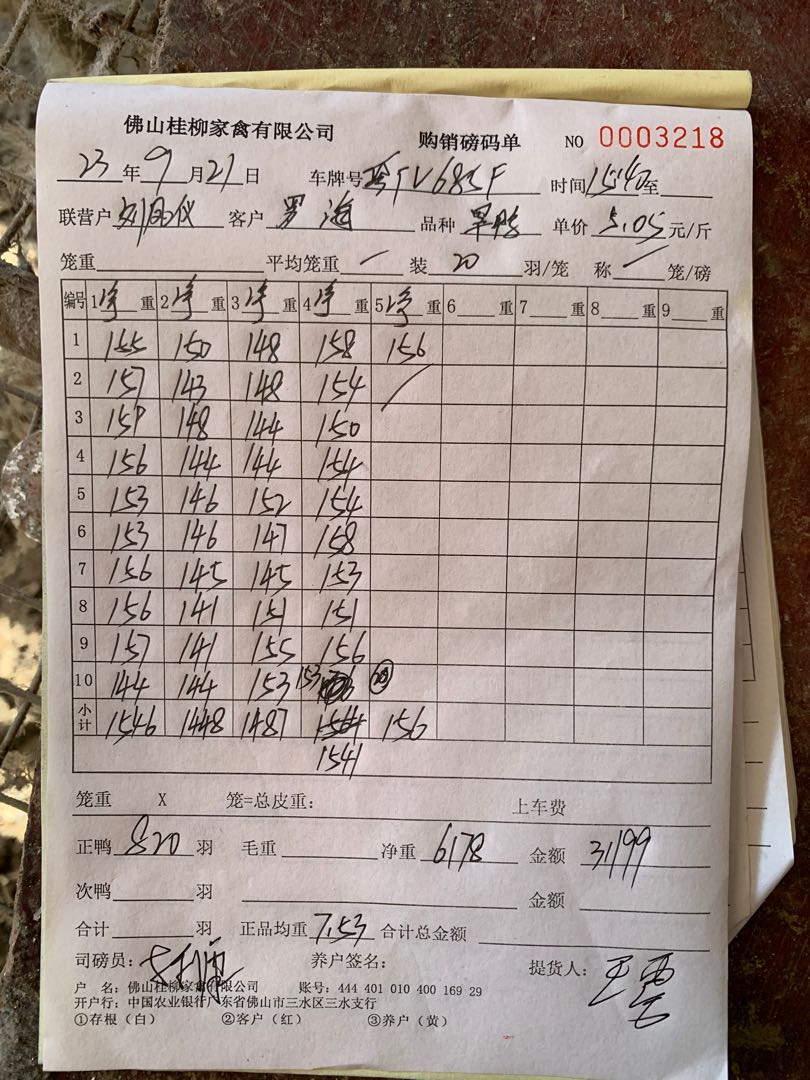 佛山桂柳家禽有限公司 购销磅码单 NO 0003218
23 年 9 月 21 日 车牌号 时间 15:40 至
联营户 客户 罗海 品种 单价 5.05 元/斤
笼重 平均笼重 / 装 20 羽/笼 称 / 笼/磅
编号 1净重 2净重 3净重 4净重 5净重 6 重 7 重 8 重 9 重
1 155 150 148 158 156
2 157 143 148 154 /
3 159 148 144 150
4 156 144 144 154
5 153 146 152 154
6 153 146 147 158
7 156 145 145 153
8 156 141 151 151
9 157 141 155 156
10 144 144 153 153
小计 1546 1448 1487 156
1541
笼重 X 笼=总皮重： 上车费
正鸭 820 羽 毛重 净重 6178 金额 31199
次鸭 羽 金额
合计 羽 正品均重 7.53 合计总金额
司磅员： 养户签名： 提货人：
户 名：佛山桂柳家禽有限公司 账号：444 401 010 400 169 29
开户行：中国农业银行广东省佛山市三水区三水支行
①存根（白） ②客户（红） ③养户（黄）